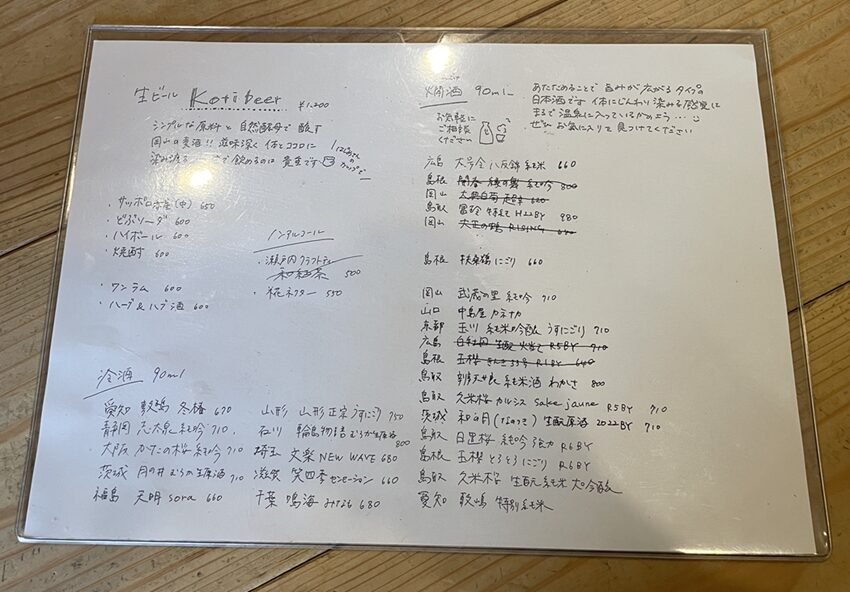 生ビール Kotibeer ¥1,200
シンプルな原料と自然酵母で醸す
岡山の麦酒!! 滋味深く体とココロに
染み渡る で飲めるのは貴重です
・サッポロ赤星(中) 650
・どぶソーダ 600
・ハイボール 600
・焼酎 600
・ワンラム 600
・ハーブ&ハブ酒 600
ノンアルコール
・瀬戸内クラフトティー
和紅茶 500
・花ネクター 550
冷酒 90ml
愛知 敷嶋 冬椿 670
静岡 志太泉 純吟 710
大阪 かたの桜 純吟 710
茨城 月の井 むろか生原酒 710
福島 天明 sora 660
山形 山形正宗 うすにごり 750
石川 輪島物語 むろか生原酒 800
埼玉 文楽 NEW WAVE 680
滋賀 笑四季 センセーション 660
千葉 鳴海 みなも 680
燗酒 90ml
お気軽に
ご相談
ください
あたためることで旨みが広がるタイプの
日本酒です 体にじんわり染みる感覚は
まるで温泉に入っているかのよう…
ぜひお気に入り見つけてください
広島 大号令 八反錦 純米 660
島根 開春
岡山 大典白菊
鳥取 冨玲 特純 H22BY 980
岡山 RISING
島根 扶桑鶴 にごり 660
岡山 武蔵の里 純吟 710
山口 中島屋 カネナカ
京都 玉川 純米吟醸 うすにごり 710
広島 白牡丹 生酛 R5BY 710
島根 玉櫻 R1BY 640
鳥取 辨天娘 純米酒 わかさ 800
鳥取 久米桜 カルシス Sake jaune R5BY 710
茨城 和の月(なのつき) 生酛原酒 2022BY 710
鳥取 日置桜 純吟 強力 R6BY
島根 玉櫻 とろとろにごり R6BY
鳥取 久米桜 生酛純米大吟醸
愛知 敷嶋 特別純米